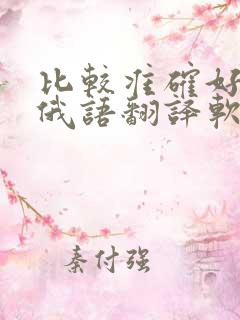 比較准確好
俄語翻譯軟
秦付强